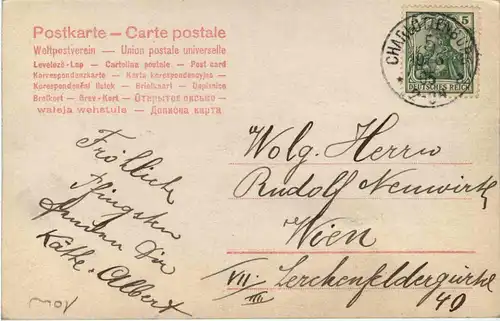 Postkarte — Carte postale
Weltpostverein — Union postale universelle
Levelező-Lap — Cartolina postale — Post card
Korrespondenzkarte — Karta korespondencyjna
Korespondenční lístek — Briefkaart — Dopisnice
Brefkort — Brev-Kort — Открытое письмо
Дописна карта
5
DEUTSCHES REICH
CHARLOTTENBURG
Fröhliche
Pfingsten
Käthe. Albert
Wolg. Herrn
Rudolf Neuwirth
Wien
VII: Lerchenfeldergürtel
III
49